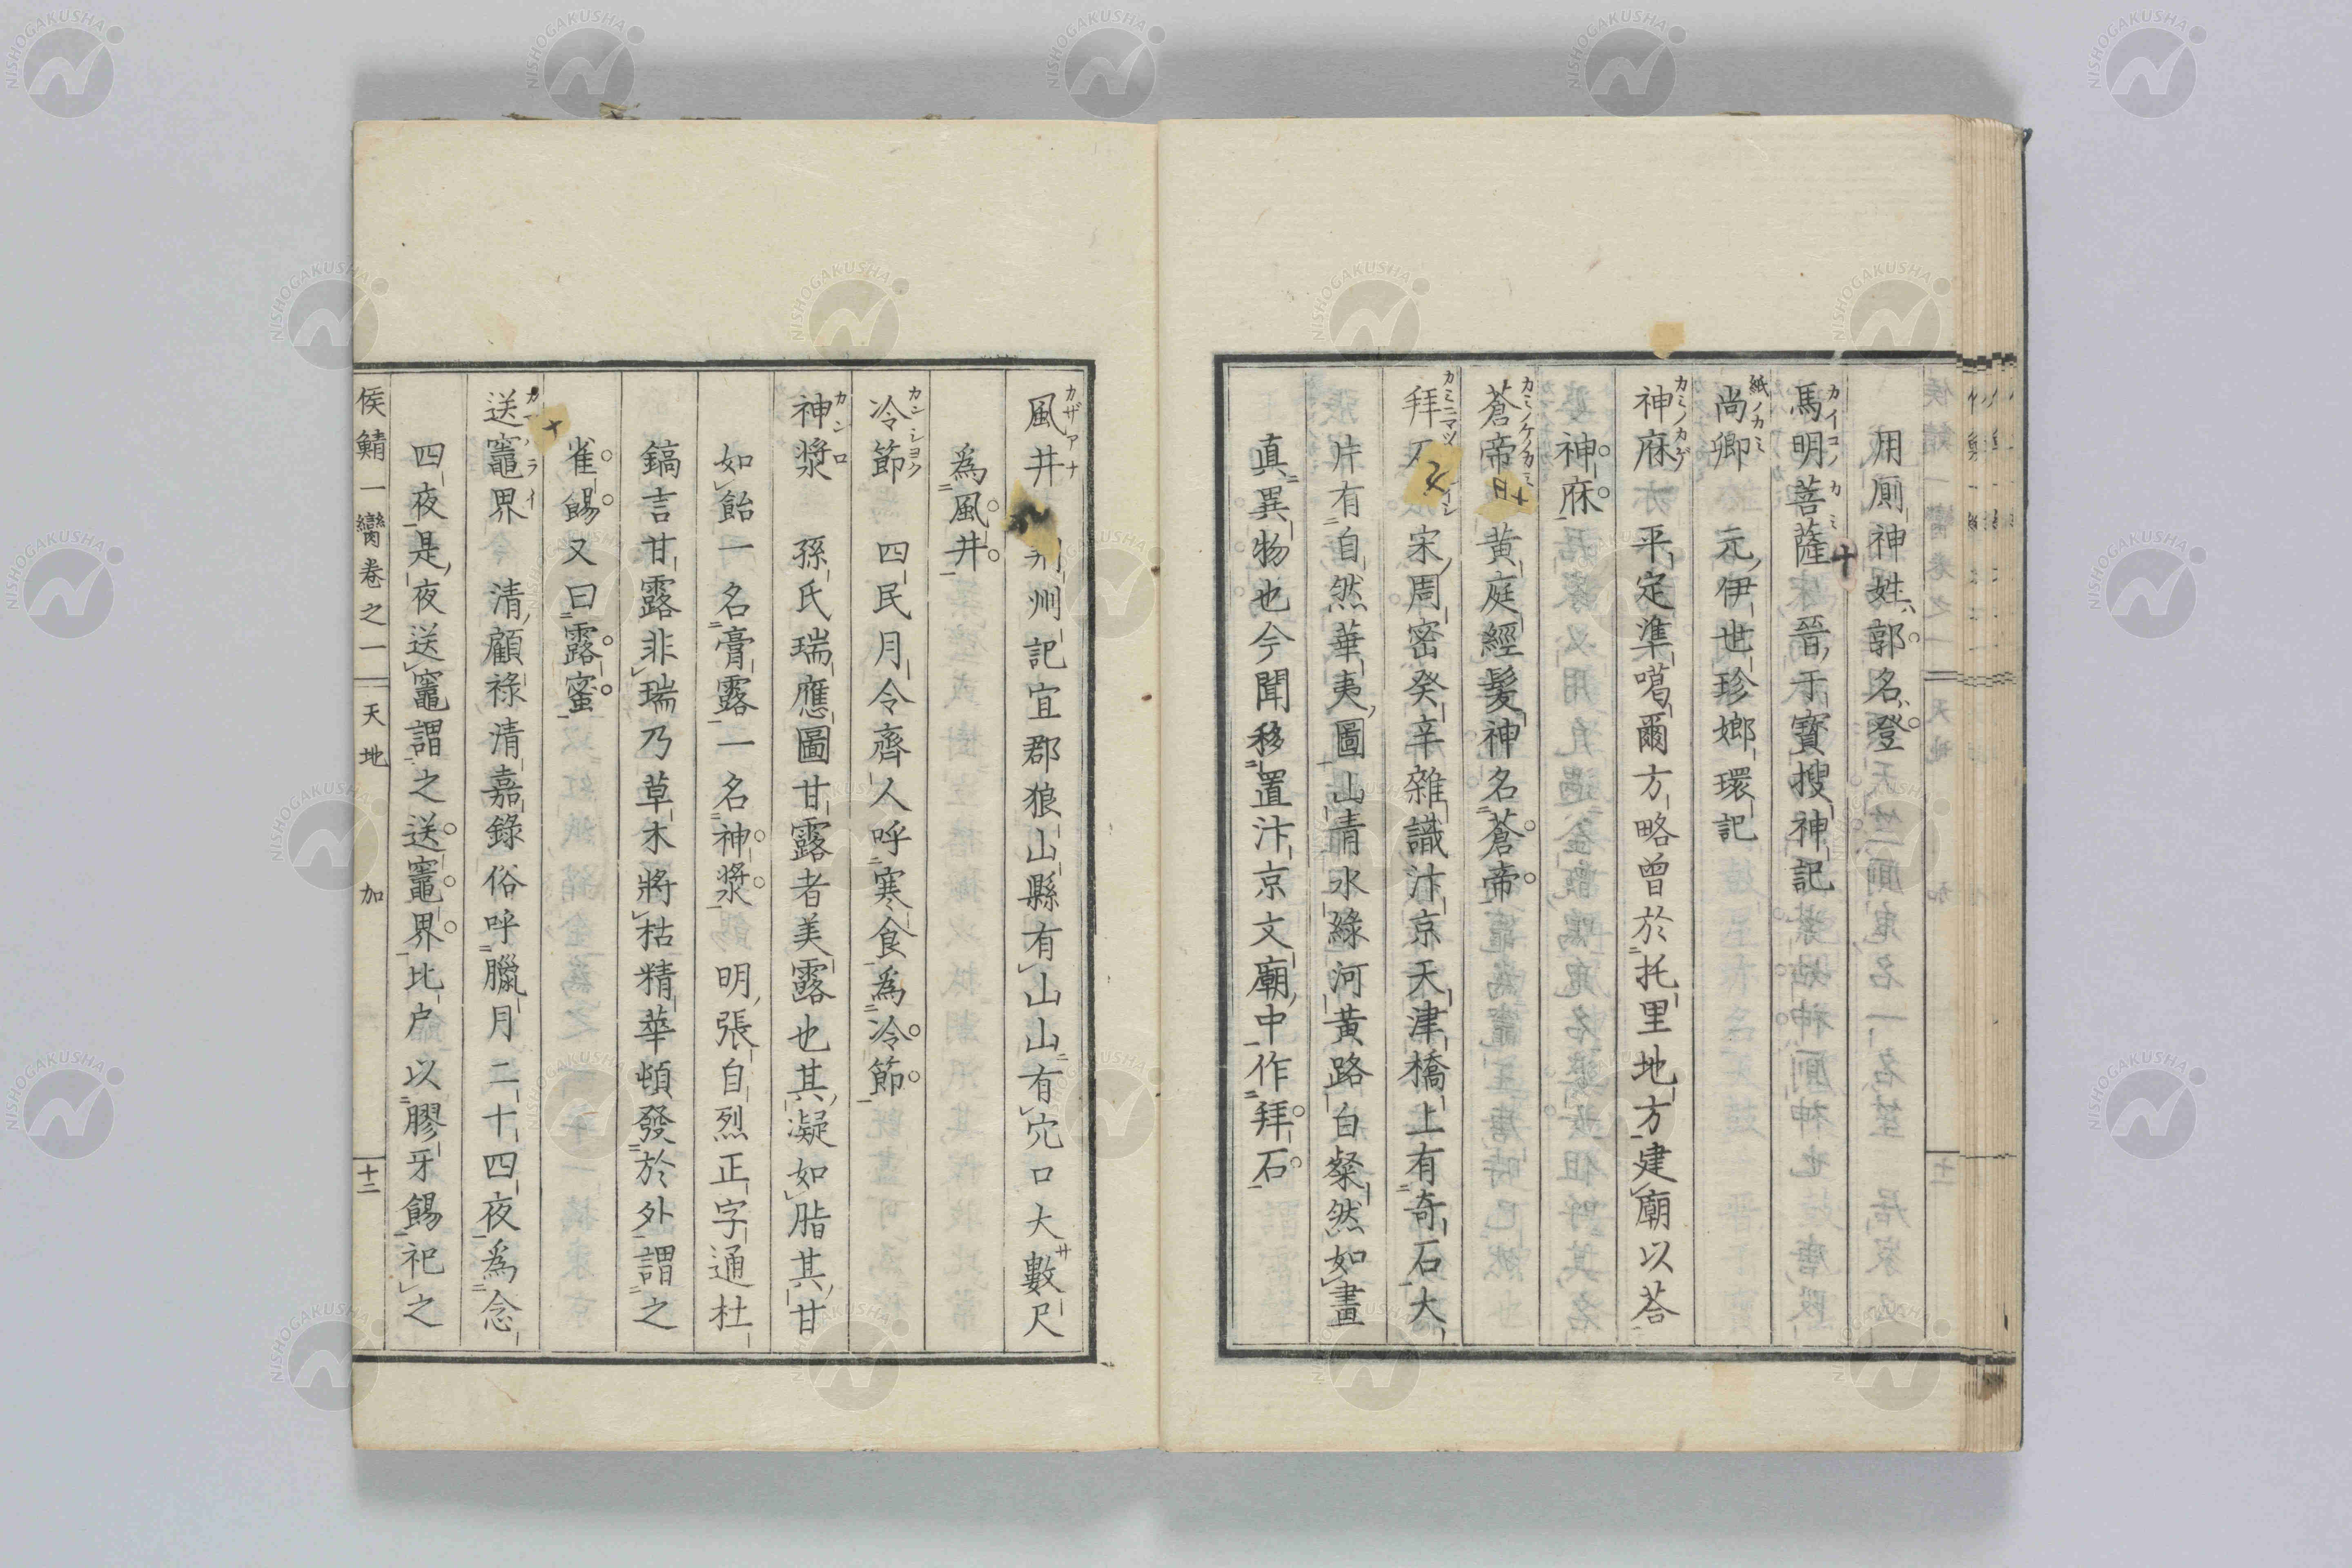 用厠神姓郭名登
馬明菩薩 晉于寳搜神記
尚卿 元伊世珍嫏環記
神庥 平定準噶爾方略曾於托里地方建廟以荅
神庥
蒼帝 黃庭經髮神名蒼帝
拜石 宋周密癸辛雜識汴京天津橋上有奇石大
片有自然華夷圖山青水綠河黃路白粲然如畫
真異物也今聞移置汴京文廟中作拜石
風井 荆州記宜郡狼山縣有山山有穴口大數尺
為風井
冷節 四民月令齊人呼寒食為冷節
神漿 孫氏瑞應圖甘露者美露也其凝如脂其甘
如飴一名膏露一名神漿 明張自烈正字通杜
鎬言甘露非瑞乃草木將枯精華頓發於外謂之
雀餳又曰露蜜
送竈界 清顧祿清嘉錄俗呼臘月二十四夜為念
四夜是夜送竈謂之送竈界比户以膠牙餳祀之
侯鯖一臠卷之一 天地 加 十二
NISHOGAKUSHA